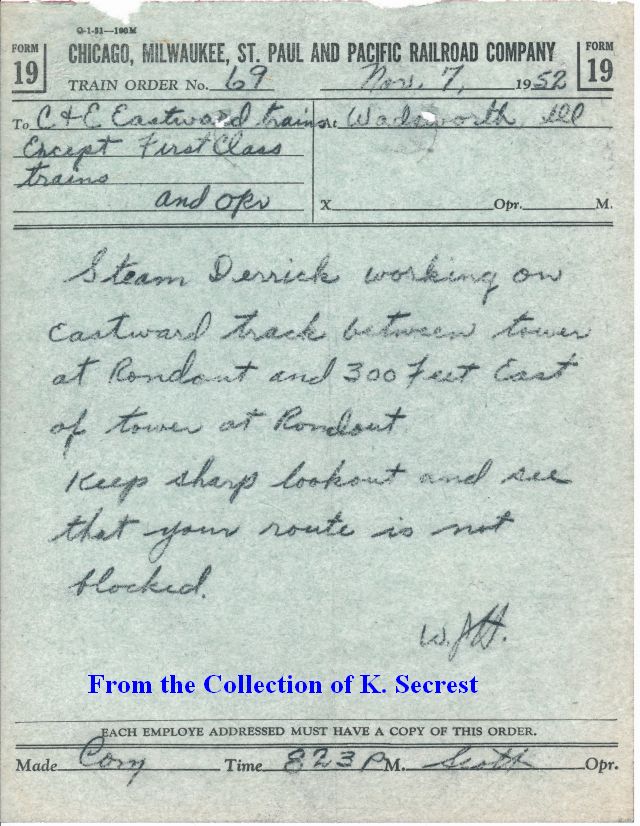 Q-1-51—100M
FORM 19
CHICAGO, MILWAUKEE, ST. PAUL AND PACIFIC RAILROAD COMPANY
FORM 19
TRAIN ORDER No. 69 Nov. 7, 1952
To C & E Eastward trains At Wadsworth Ill
Except First Class
trains
and opr X Opr. M.
Steam Derrick working on
Eastward track between tower
at Rondout and 300 Feet East
of tower at Rondout
Keep sharp lookout and see
that your route is not
blocked.
W.J.H.
From the Collection of K. Secrest
EACH EMPLOYE ADDRESSED MUST HAVE A COPY OF THIS ORDER.
Made Com Time 823 P M. Scott Opr.